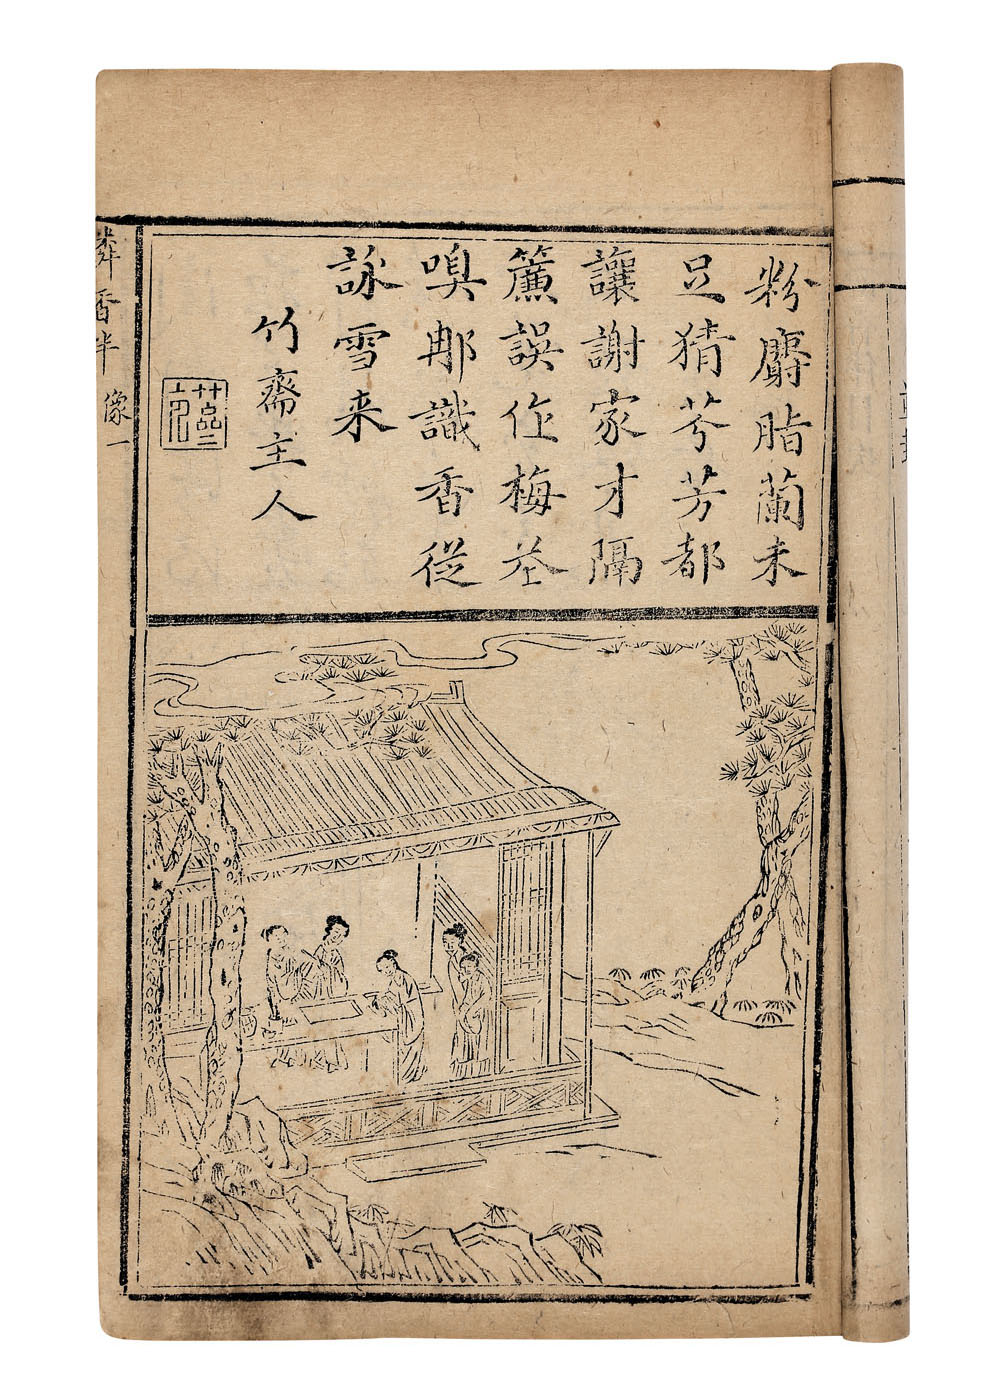 粉麝脂蘭未
足猜芬芳都
讓謝家才隔
簾誤作梅花
嗅那識香從
詠雪来
竹齋主人
憐香半 像一